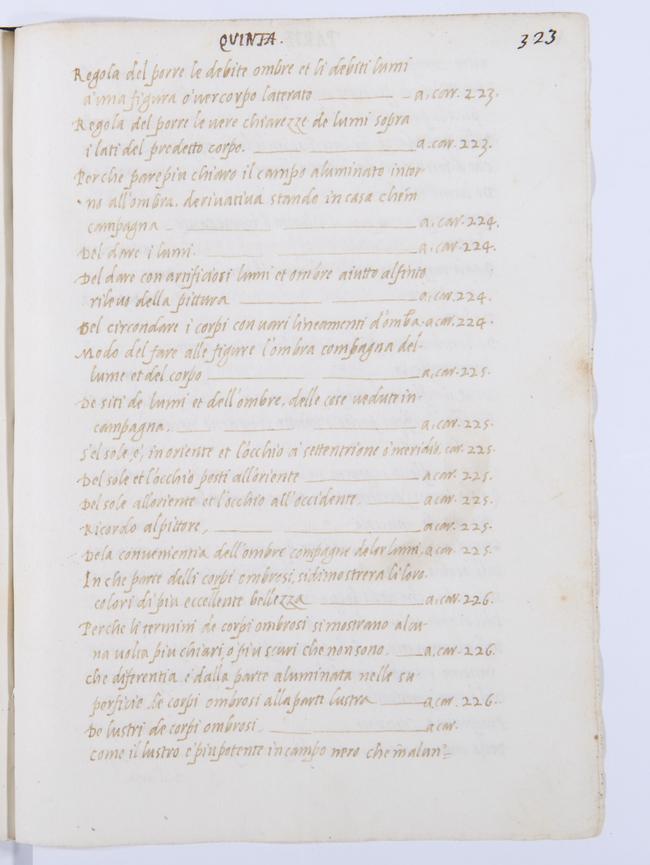 QUINTA.
323
Regola del porre le debite ombre et li debiti lumi
a'una figura o'ver corpo laterato a. car. 223.
Regola del porre le vere chiarezze de lumi sopra
i lati del predetto corpo. a. car. 223.
Perche pare piu chiaro il campo aluminato intor
no all'ombra, derivativa stando in casa che in
campagna a. car. 224.
Del dare i lumi. a. car. 224.
Del dare con artificiosi lumi et ombre aiutto al finto
rilevo della pittura a. car. 224.
Del circondare i corpi con vari lineamenti d'ombra. a car 224.
Modo del fare alle figure l'ombra compagna del
lume et del corpo a. car. 225.
De siti de lumi et dell'ombre, delle cose vedute in
campagna. a. car. 225.
S'el sole, e', in oriente et l'occhio a' settentrione o'meridio, car. 225.
Del sole et l'occhio posti all'oriente a car. 225.
Del sole all'oriente et l'occhio all'occidente, a car. 225.
Ricordo al pittore, a. car. 225.
Dela convenientia dell'ombre compagne de lor lumi, a car. 225.
In che parte delli corpi ombrosi, si dimostrera li loro
colori di piu eccellente bellezza a. car. 226.
Perche li termini de corpi ombrosi si mostrano alcu-
na volta piu chiari, o piu scuri che non sono. a. car. 226.
che diferentia e' dalla parte aluminata nelle su
perficie de corpi ombrosi alla parte lustra a. car. 226.
De lustri de corpi ombrosi, a. car.
come il lustro e' piu potente in campo nero che in